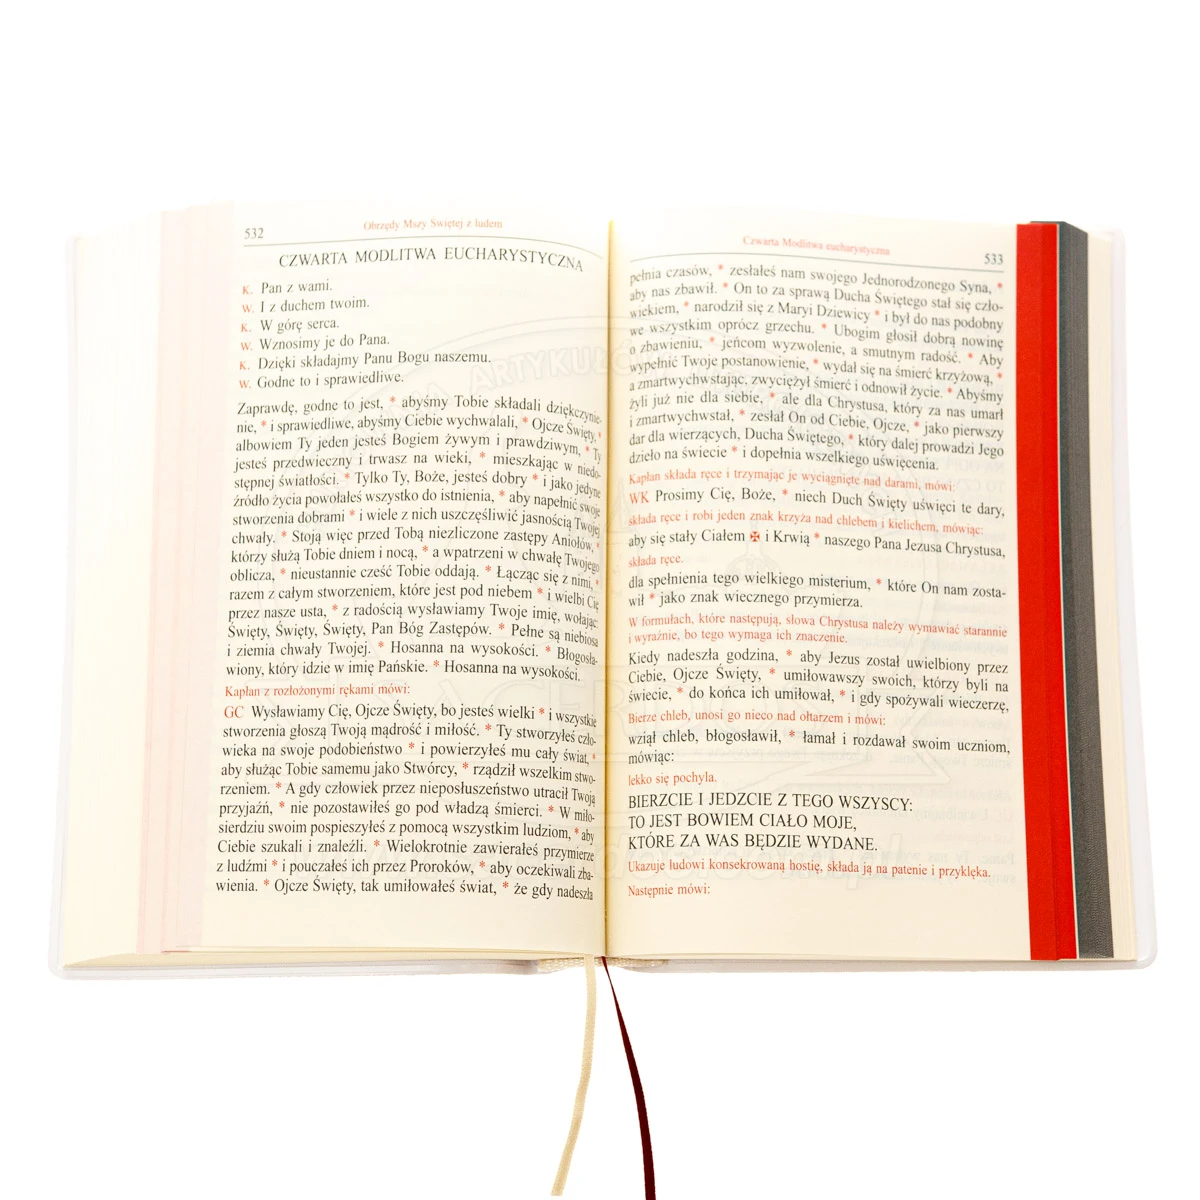 532
Obrzędy Mszy Świętej z ludem
CZWARTA MODLITWA EUCHARYSTYCZNA
K. Pan z wami.
W. I z duchem twoim.
K. W górę serca.
W. Wznosimy je do Pana.
K. Dzięki składajmy Panu Bogu naszemu.
W. Godne to i sprawiedliwe.
Zaprawdę, godne to jest, * abyśmy Tobie składali dziękczynie-
nie, * i sprawiedliwe, abyśmy Ciebie wychwalali, * Ojcze Święty, *
albowiem Ty jeden jesteś Bogiem żywym i prawdziwym, * Ty
jesteś przedwieczny i trwasz na wieki, * mieszkając w niedo-
stępnej światłości. * Tylko Ty, Boże, jesteś dobry * i jako jedyne
źródło życia powołałeś wszystko do istnienia, * aby napełnić swoje
stworzenia dobrami * i wiele z nich uszczęśliwić jasnością Twojej
chwały. * Stoją więc przed Tobą niezliczone zastępy Aniołów, *
którzy służą Tobie dniem i nocą, * a wpatrzeni w chwałę Twojego
oblicza, * nieustannie cześć Tobie oddają. * Łącząc się z nimi, *
razem z całym stworzeniem, które jest pod niebem * i wielbi Cię
przez nasze usta, * z radością wysławiamy Twoje imię, wołając:
Święty, Święty, Święty, Pan Bóg Zastępów. * Pełne są niebiosa
i ziemia chwały Twojej. * Hosanna na wysokości. * Błogosła-
wiony, który idzie w imię Pańskie. * Hosanna na wysokości.
Kapłan z rozłożonymi rękami mówi:
GC Wysławiamy Cię, Ojcze Święty, bo jesteś wielki * i wszystkie
stworzenia głoszą Twoją mądrość i miłość. * Ty stworzyłeś czło-
wieka na swoje podobieństwo * i powierzyłeś mu cały świat, *
aby służąc Tobie samemu jako Stwórcy, * rządził wszelkim stwo-
rzeniem. * A gdy człowiek przez nieposłuszeństwo utracił Twoją
przyjaźń, * nie pozostawiłeś go pod władzą śmierci. * W miło-
sierdziu swoim pospieszyłeś z pomocą wszystkim ludziom, * aby
Ciebie szukali i znaleźli. * Wielokrotnie zawierałeś przymierze
z ludźmi * i pouczałeś ich przez Proroków, * aby oczekiwali zba-
wienia. * Ojcze Święty, tak umiłowałeś świat, * że gdy nadeszła
Czwarta Modlitwa eucharystyczna
533
pełnia czasów, * zesłałeś nam swojego Jednorodzonego Syna, *
aby nas zbawił. * On to za sprawą Ducha Świętego stał się czło-
wiekiem, * narodził się z Maryi Dziewicy * i był do nas podobny
we wszystkim oprócz grzechu. * Ubogim głosił dobrą nowinę
o zbawieniu, * jeńcom wyzwolenie, a smutnym radość. * Aby
wypełnić Twoje postanowienie, * wydał się na śmierć krzyżową, *
a zmartwychwstając, zwyciężył śmierć i odnowił życie. * Abyśmy
żyli już nie dla siebie, * ale dla Chrystusa, który za nas umarł
i zmartwychwstał, * zesłał On od Ciebie, Ojcze, * jako pierwszy
dar dla wierzących, Ducha Świętego, * który dalej prowadzi Jego
dzieło na świecie * i dopełnia wszelkiego uświęcenia.
Kapłan składa ręce i trzymając je wyciągnięte nad darami, mówi:
WK Prosimy Cię, Boże, * niech Duch Święty uświęci te dary,
składa ręce i robi jeden znak krzyża nad chlebem i kielichem, mówiąc:
aby się stały Ciałem ✠ i Krwią * naszego Pana Jezusa Chrystusa,
składa ręce.
dla spełnienia tego wielkiego misterium, * które On nam zosta-
wił * jako znak wiecznego przymierza.
W formułach, które następują, słowa Chrystusa należy wymawiać starannie
i wyraźnie, bo tego wymaga ich znaczenie.
Kiedy nadeszła godzina, * aby Jezus został uwielbiony przez
Ciebie, Ojcze Święty, * umiłowawszy swoich, którzy byli na
świecie, * do końca ich umiłował, * i gdy spożywali wieczerzę,
Bierze chleb, unosi go nieco nad ołtarzem i mówi:
wziął chleb, błogosławił, * łamał i rozdawał swoim uczniom,
mówiąc:
lekko się pochyla.
BIERZCIE I JEDZCIE Z TEGO WSZYSCY:
TO JEST BOWIEM CIAŁO MOJE,
KTÓRE ZA WAS BĘDZIE WYDANE.
Ukazuje ludowi konsekrowaną hostię, składa ją na patenie i przyklęka.
Następnie mówi: